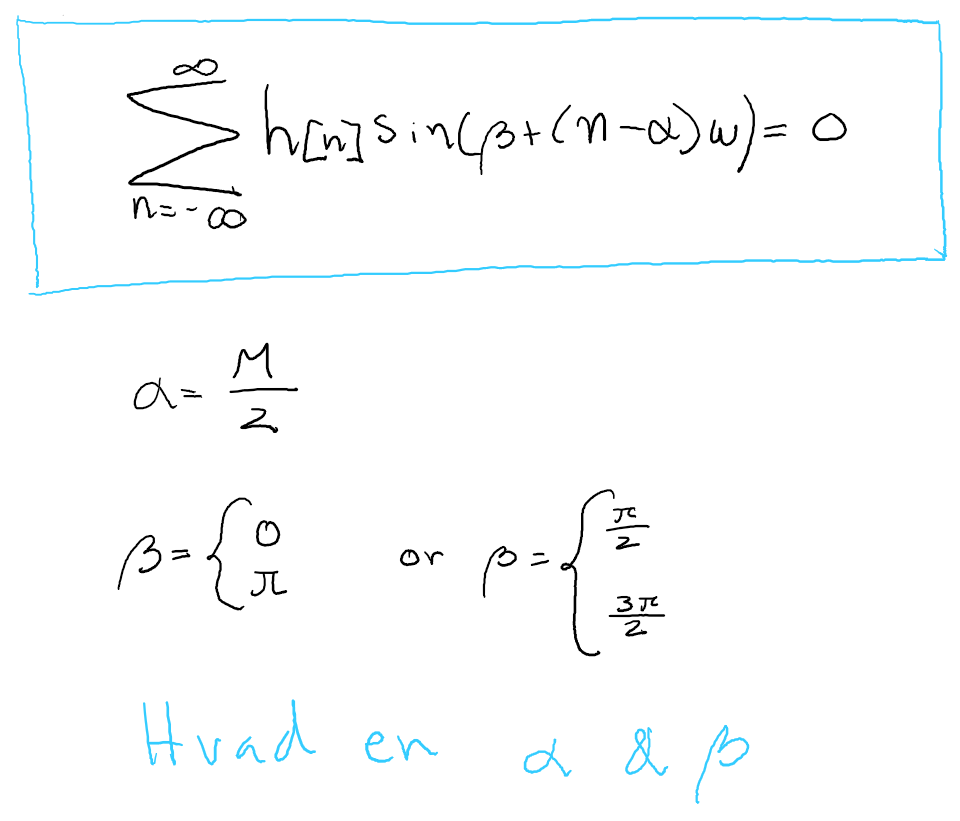 ∞
∑ h[n] sin(β+(n-α)ω) = 0
n=-∞
α = M/2
β = { 0 π or β = { π/2 3π/2
Hvad er α & β